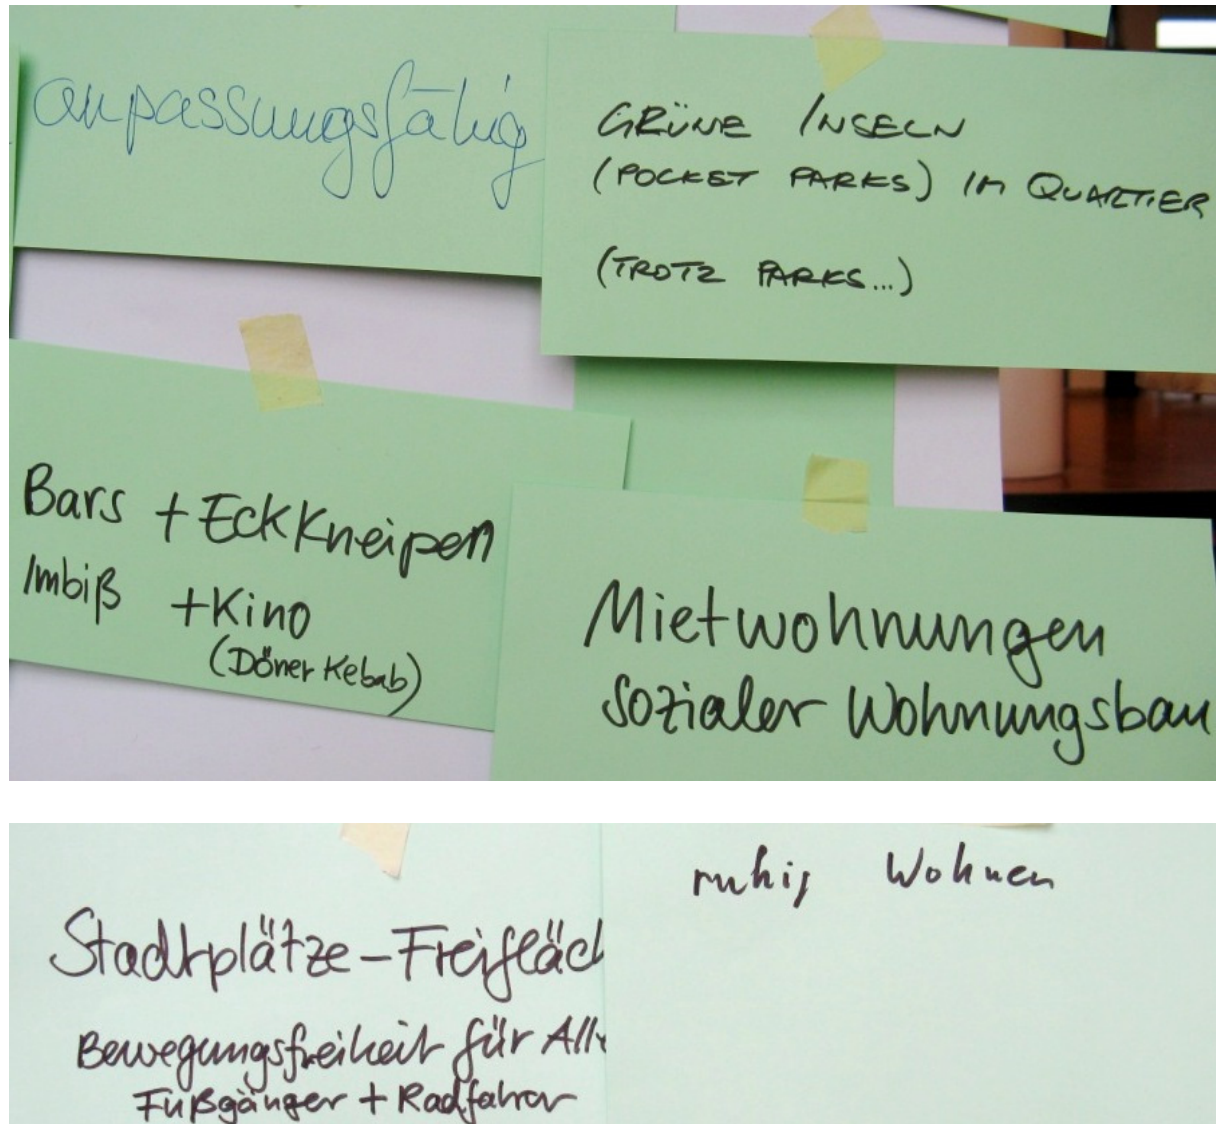 anpassungsfähig
GRÜNE INSELN
(POCKET PARKS) IM QUARTIER
(TROTZ PARKS...)
Bars + Eckkneipen
Imbiß + Kino
(Döner Kebab)
Mietwohnungen
sozialer Wohnungsbau
Stadtplätze - Freifläc
Bewegungsfreiheit für Alle
Fußgänger + Radfahrer
ruhig Wohnen